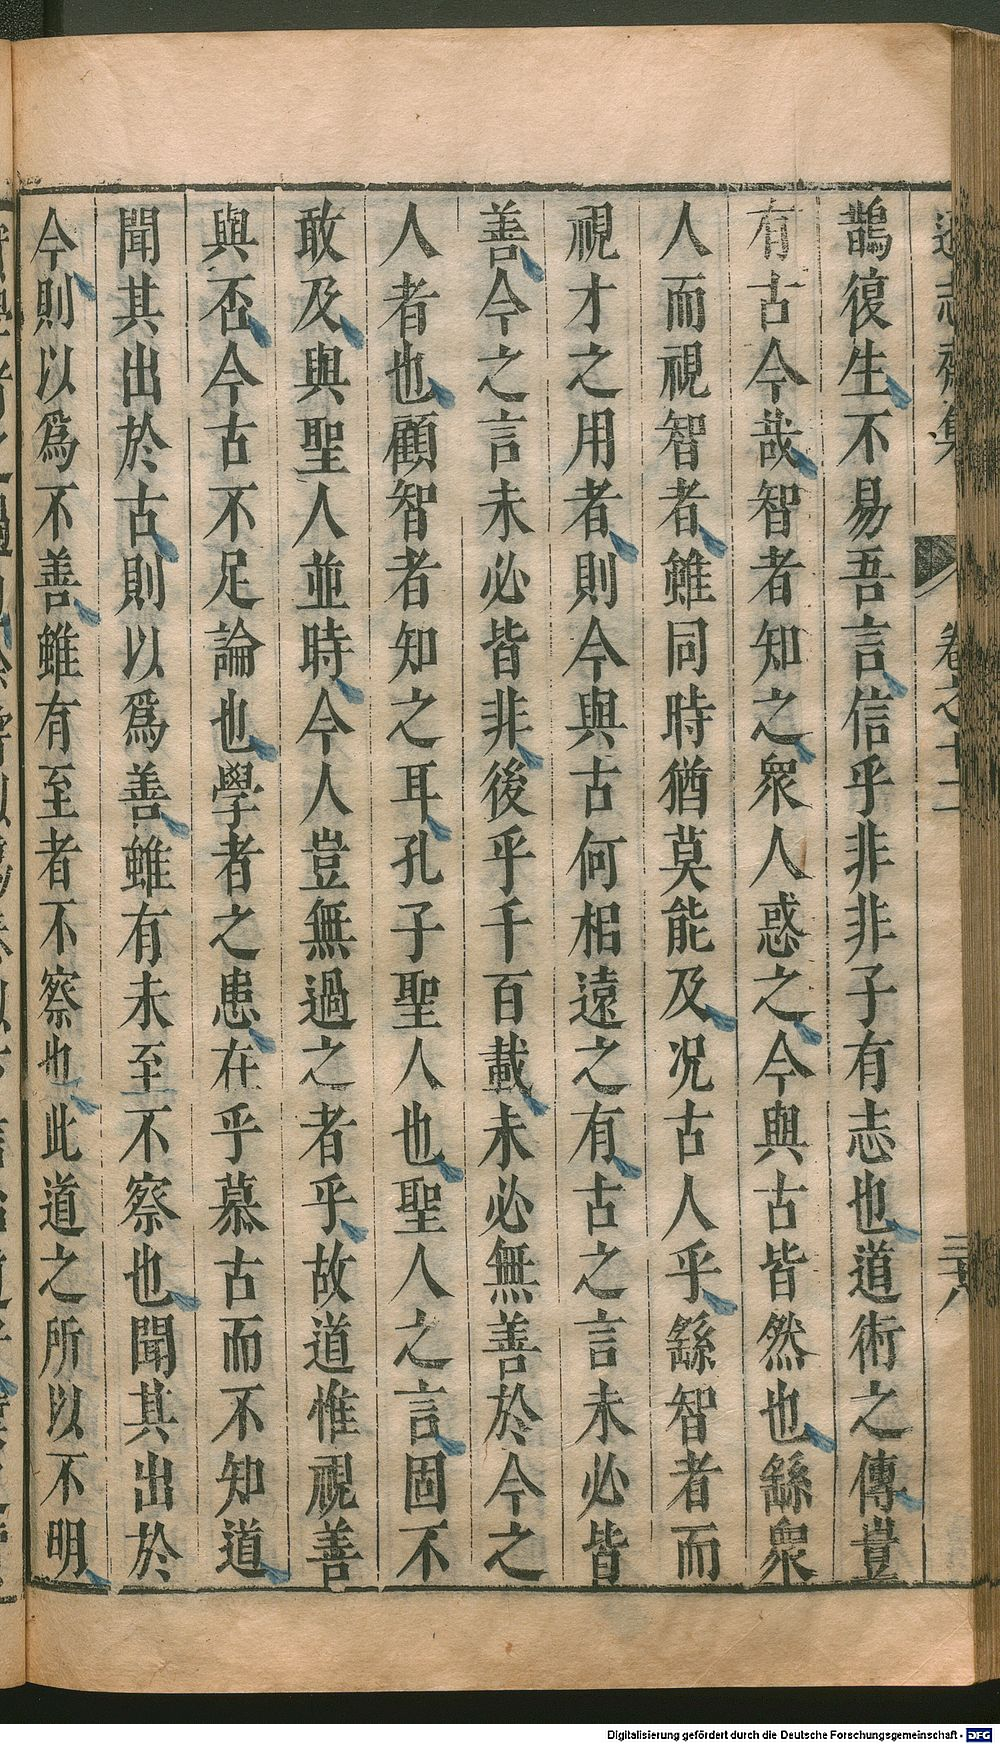 鵲復生不易吾言信乎非非子有志也道術之傳豈
有古今哉智者知之衆人惑之今與古皆然也繇衆
人而視智者雖同時猶莫能及况古人乎繇智者而
視才之用者則今與古何相遠之有古之言未必皆
善今之言未必皆非後乎千百載未必無善於今之
人者也顧智者知之耳孔子聖人也聖人之言固不
敢及與聖人並時今人豈無過之者乎故道惟視善
與否今古不足論也學者之患在乎慕古而不知道
聞其出於古則以爲善雖有未至不察也聞其出於
今則以爲不善雖有至者不察也此道之所以不明
Digitalisierung gefördert durch die Deutsche Forschungsgemeinschaft - DFG